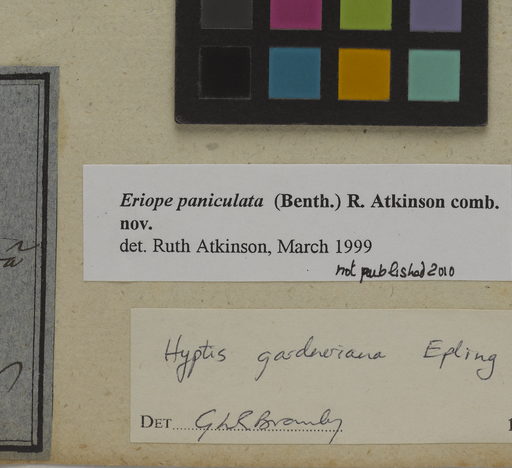 Eriope paniculata (Benth.) R. Atkinson comb.
nov.
det. Ruth Atkinson, March 1999
not published 2010
Hyptis gardneriana Epling
DET GLR Bramley